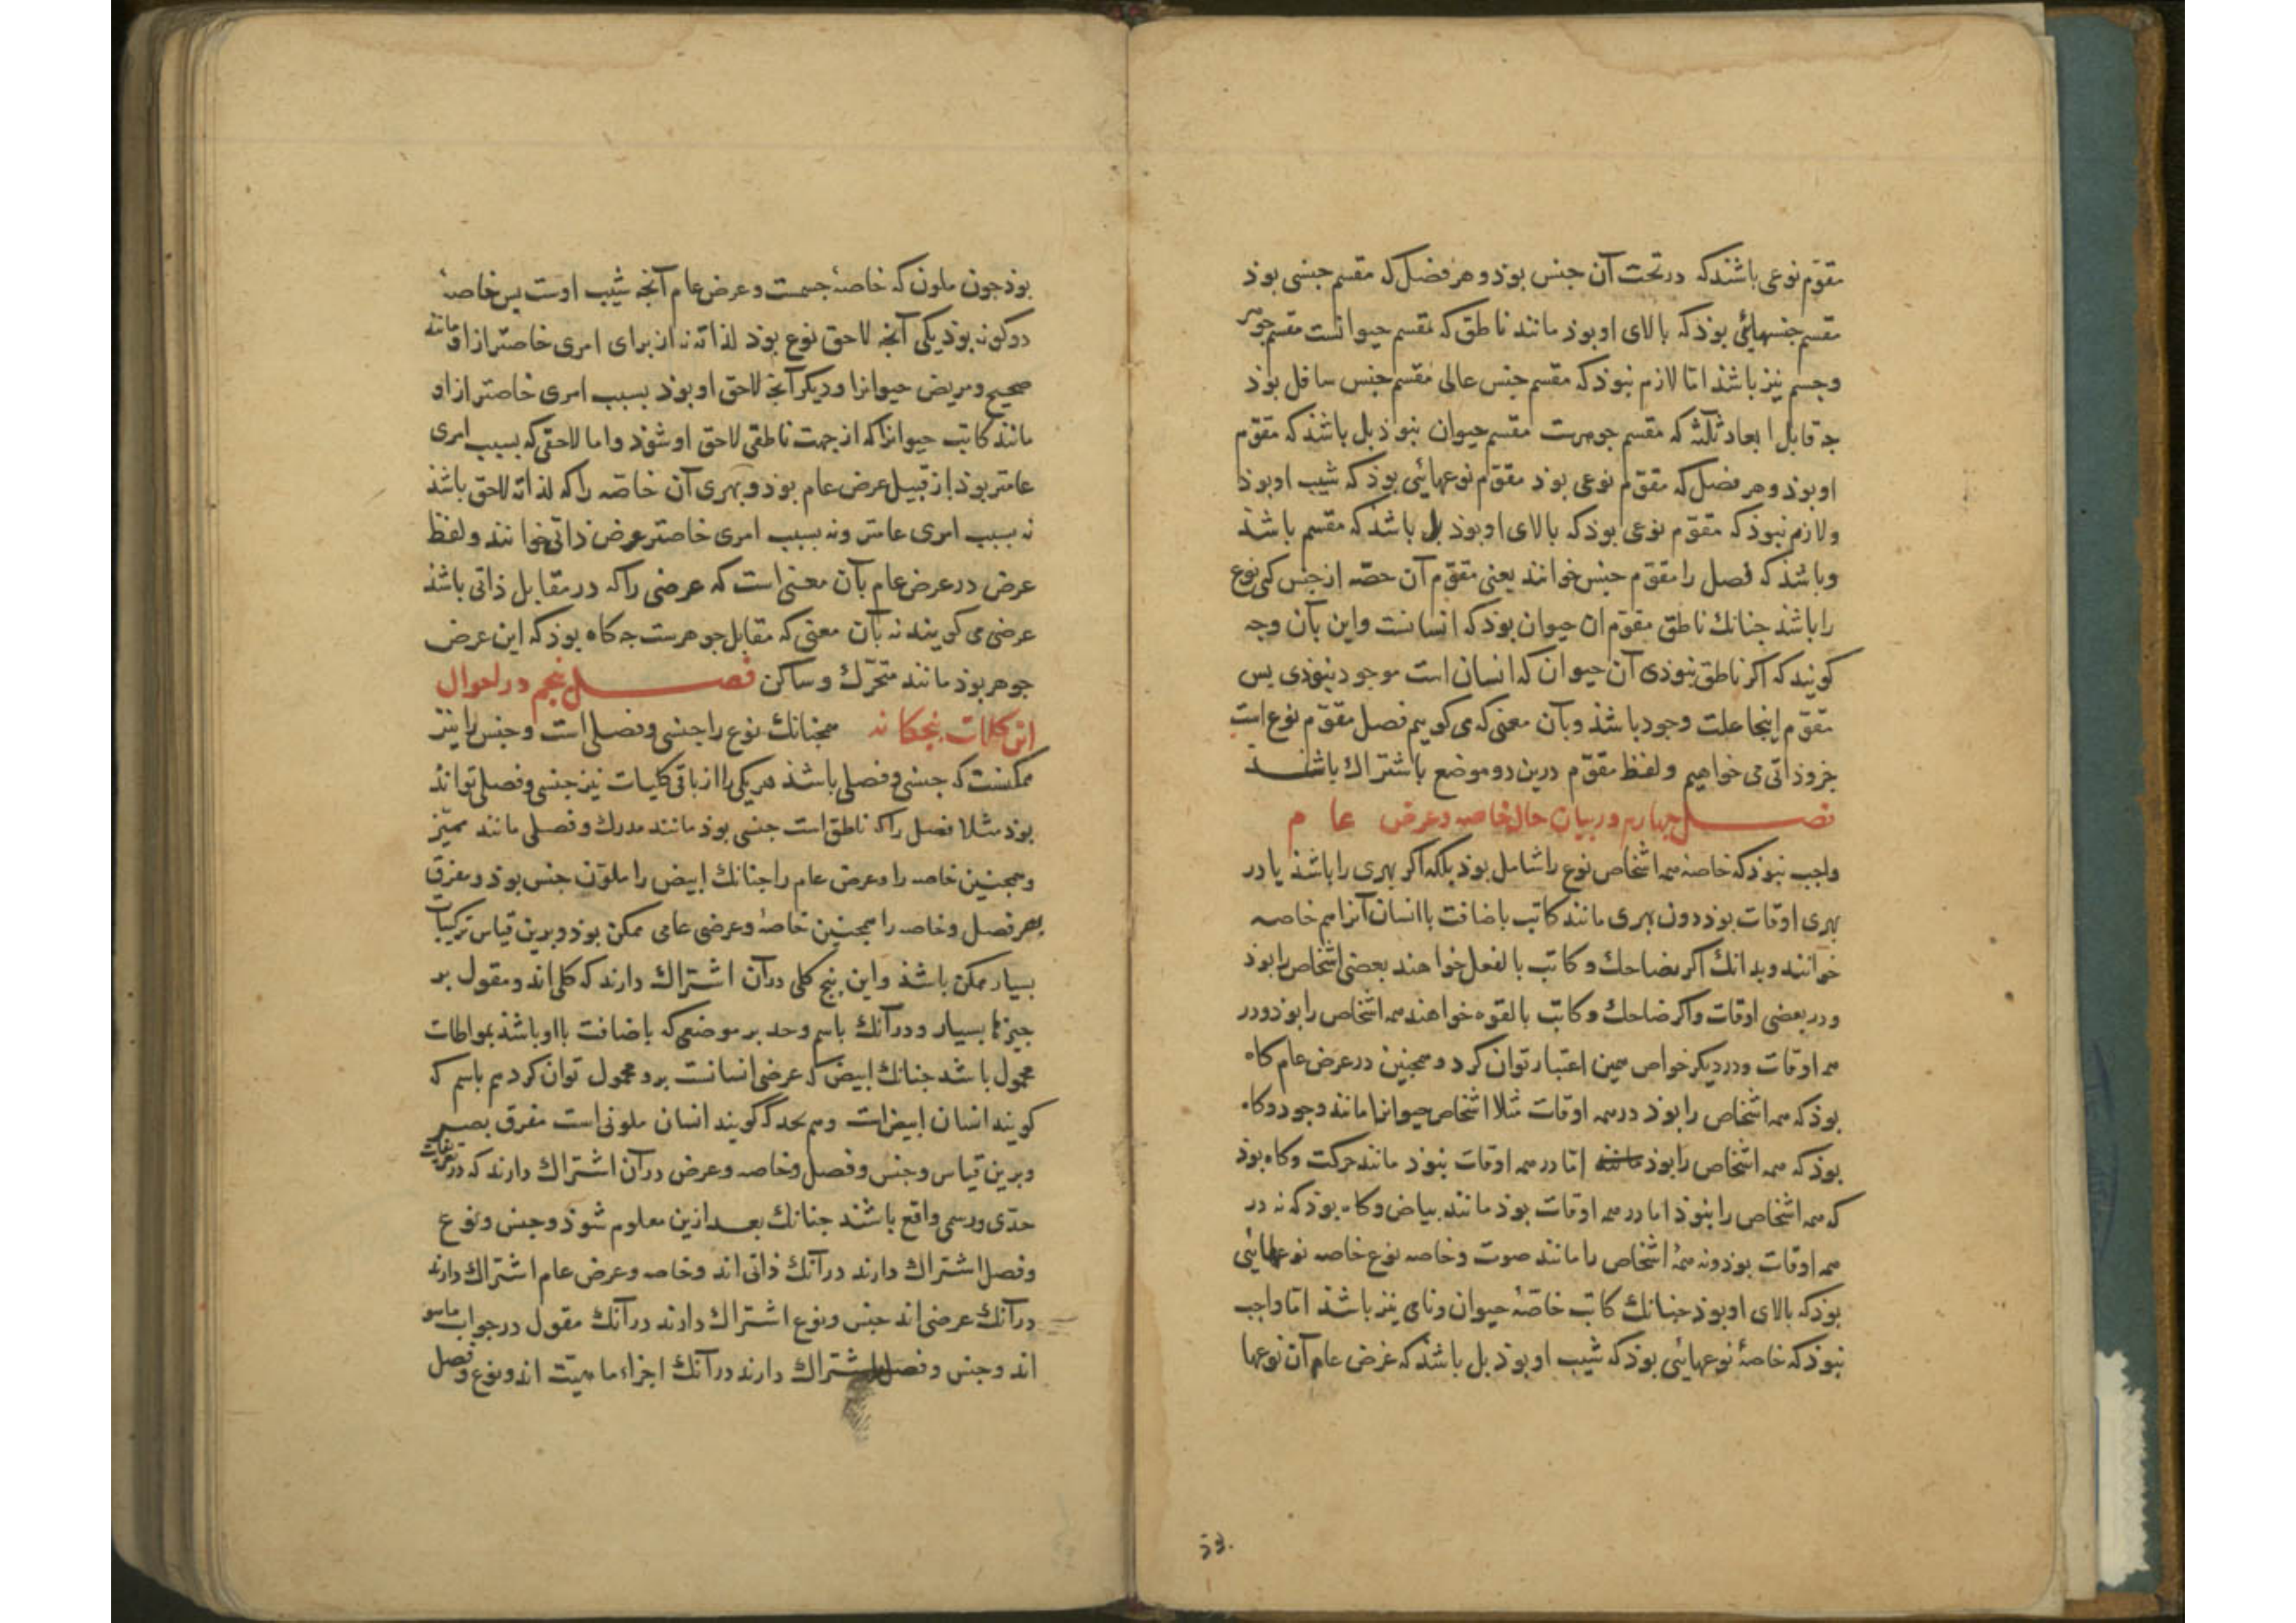 مقوّم نوعی باشند که در تحت آن جنس بوذ و هر فصل که مقسم جنسی بوذ
مقسم جنسهائی بوذ که بالای او بوذ مانند ناطق که مقسم حیوانست مقسم جوهر
و جسم نیز باشذ امّا لازم نبوذ که مقسم جنس عالی مقسم جنس سافل بوذ
جه قابل ابعاد ثلثه که مقسم جوهرست مقسم حیوان نبوذ بل باشذ که مقوّم
او بوذ و هر فصل که مقوّم نوعی بوذ مقوّم نوعهائی بوذ که شیب او بوذ
و لازم نبوذ که مقوّم نوعی بوذ که بالای او بوذ بل باشذ که مقسم باشذ
و باشذ که فصل را مقوّم جنس خوانند یعنی مقوّم آن حصّه از جنس کی نوع
را باشذ جنانك ناطق مقوّم ان حیوان بوذ که انسانست و این بآن وجه
کویند که اکر ناطق نبوذی آن حیوان که انسان است موجود نبوذی بس
مقوّم اینجا علت وجود باشذ و بآن معنی که می کوییم فصل مقوّم نوع است
جزو ذاتی می خواهیم و لفظ مقوّم درین دو موضع باشتراك باشذ
فصل جهارم در بیان حال خاصه و عرض عام
واجب نبوذ که خاصه همه اشخاص نوع را شامل بوذ بلکه اکر بهری را باشذ یا در
بهری اوقات بوذ دون بهری مانند کاتب باضافت با انسان آنرا هم خاصه
خوانند و بدانك اکر بضاحك و کاتب بالفعل خواهند بعضی اشخاص را بوذ
و در بعضی اوقات و اکر ضاحك و کاتب بالقوه خواهند همه اشخاص را بوذ و در
همه اوقات و در دیکر خواص همین اعتبار توان کرد و همجنین در عرض عام کاه
بوذ که همه اشخاص را بوذ در همه اوقات مثلا اشخاص حیوانرا مانند وجود و کاه
بوذ که همه اشخاص را بوذ امّا در همه اوقات نبوذ مانند حرکت و کاه بوذ
که همه اشخاص را نبوذ اما در همه اوقات بوذ مانند بیاض و کاه بوذ که نه در
همه اوقات بوذ و نه همهٔ اشخاص را مانند صوت و خاصه نوع خاصه نوعهائی
بوذ که بالای او بوذ جنانك کاتب خاصّهٔ حیوان و نامی نیز باشذ امّا واجب
نبوذ که خاصهٔ نوعهائی بوذ که شیب او بوذ بل باشذ که عرض عام آن نوعها
بوذ
بوذ جون ملون که خاصهٔ جسمست و عرض عام آنجه شیب اوست بس خاصهٔ
دو کونه بوذ یکی آنجه لاحق نوع بوذ لذاته نه از برای امری خاصتر از او مانند
صحیح و مریض حیوانرا و دیکر آنجه لاحق او بوذ بسبب امری خاصتر از او
مانند کاتب حیوانرا که از جهت ناطقی لاحق او شوذ و اما لاحقی که بسبب امری
عامتر بوذ از قبیل عرض عام بوذ و بهری آن خاصّه را که لذاته لاحق باشذ
نه بسبب امری عامتر و نه بسبب امری خاصتر عرض ذاتی خوانند و لفظ
عرض در عرض عام بآن معنی است که عرضی را که در مقابل ذاتی باشذ
عرضی می کویند نه بآن معنی که مقابل جوهرست جه کاه بوذ که این عرض
جوهر بوذ مانند متحرّك و ساکن فصل بنجم در احوال
این کلیات بنجکانه همجنانك نوع را جنسی و فصلی است و جنس را نیز
ممکنست که جنسی و فصلی باشذ هر یکی را از باقی کلیات نیز جنسی و فصلی تواند
بوذ مثلا فصل را که ناطق است جنسی بوذ مانند مدرك و فصلی مانند ممیّز
و همجنین خاصه را و عرض عام را جنانك ابیض را ملوّن جنس بوذ و مفرّق
بصر فصل و خاصه را همجنین خاصهٔ و عرضی عامی ممکن بوذ و برین قیاس ترکیبات
بسیار ممکن باشذ و این بنج کلی در آن اشتراك دارند که کلی اند و مقول بر
جیزها بسیار و در آنك باسم و حد بر موضعی که باضافت با او باشذ بمواطات
محمول باشد جنانك ابیض که عرضی انسانست برو محمول توان کرد هم باسم که
کویند انسان ابیض است و هم بحد که کویند انسان ملونی است مفرق بصر
و برین قیاس و جنس و فصل و خاصه و عرض در آن اشتراك دارند که در تعریفات
حدّی و رسمی واقع باشند جنانك بعد ازین معلوم شوذ و جنس و نوع
و فصل اشتراك دارند در آنك ذاتی اند و خاصه و عرض عام اشتراك دارند
در آنك عرضی اند جنس و نوع اشتراك دارند در آنك مقول در جواب ماهو
اند و جنس و فصل اشتراك دارند در آنك اجزاء ماهیّت اند و نوع و فصل